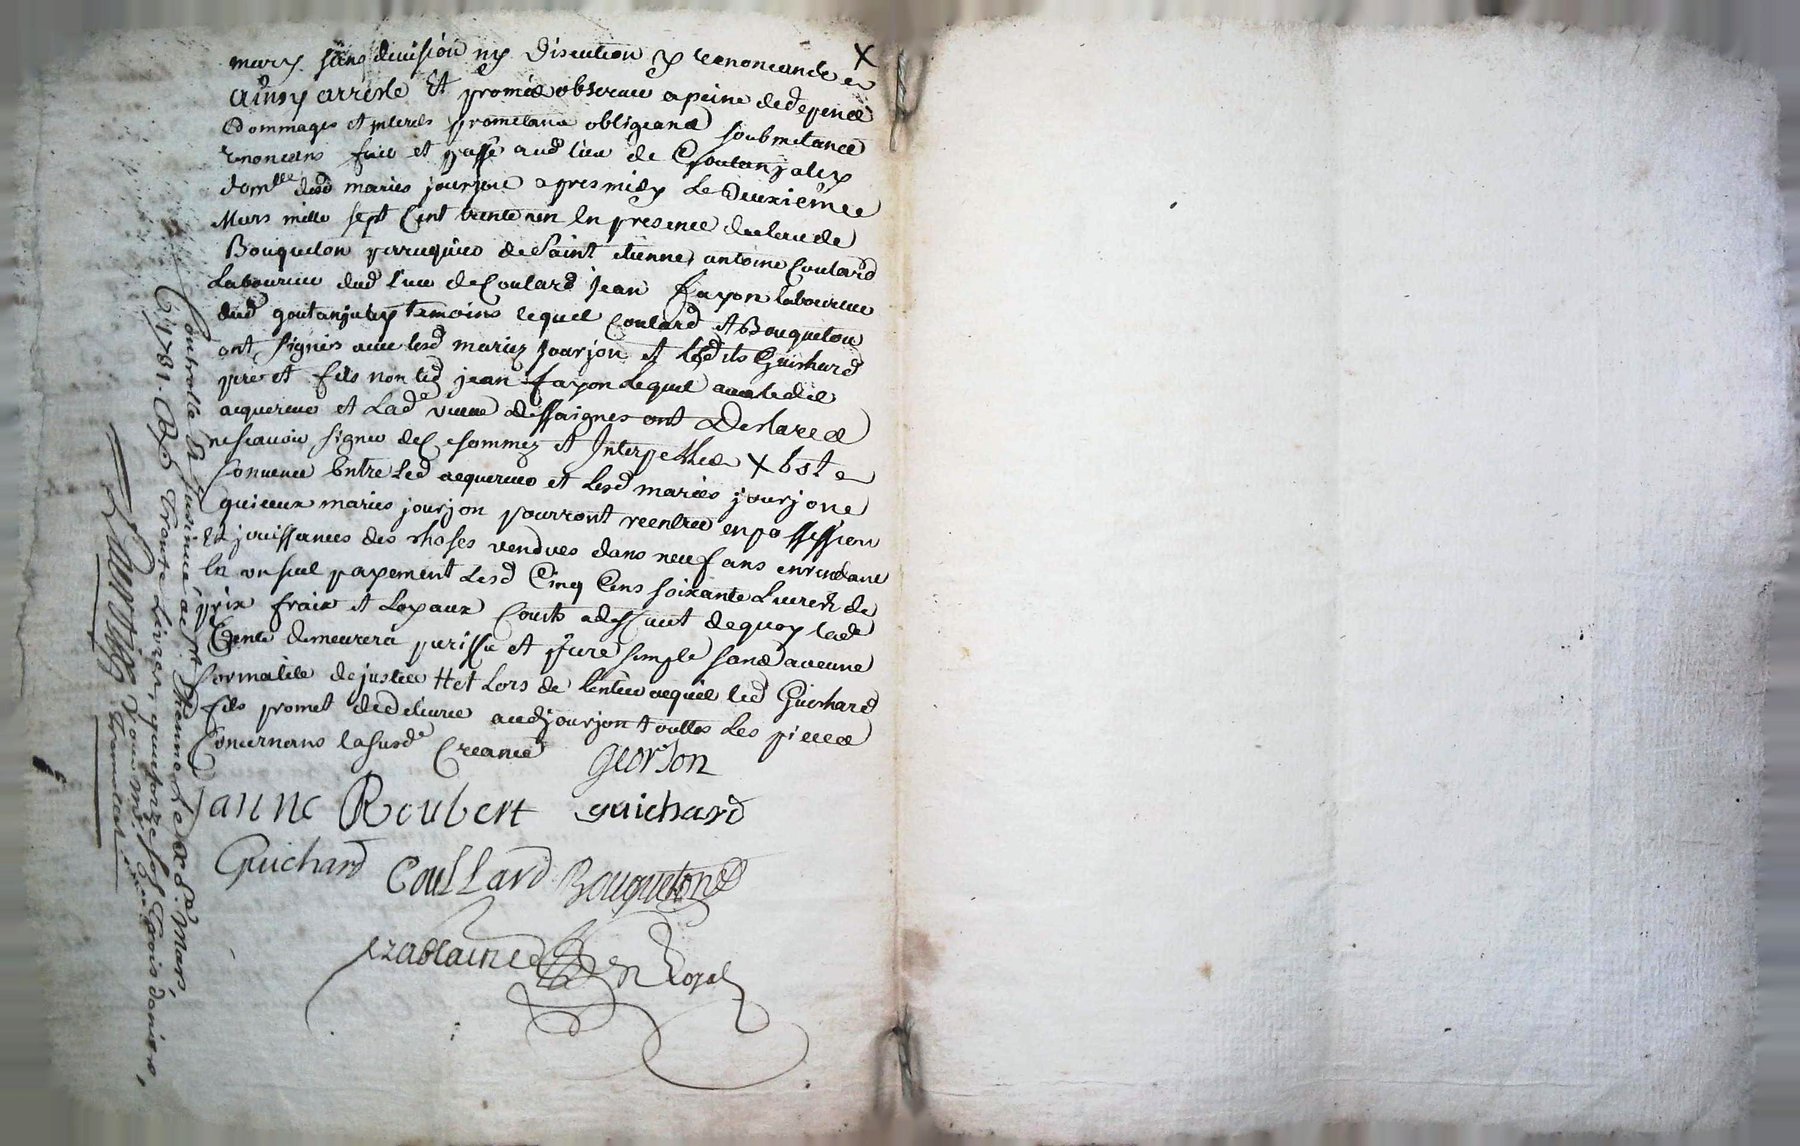 mary sans division ny discution y renoncande X
ainsy arresté et promis observer a peine de depence
dommages et interes promettant obligeand soubmetance
renoncans faict et passé aud lieu de Goutanjalex
domlle desd maries jourjone apres midy le deuxième
Mars mille sept Cent trente un en presence de claude
Bouqueton perruquier de Saint etienne, antoine Coulard
Laboureur dud lieu de Coulard jean fayon laboureur
dud goutanjalex temoins lequel Coulard et Bouqueton
ont signés avec lesd mariez Jourjon et lesdits Guichard
pere et fils non led jean fayon lequel avec ledit
acquereur et lade veuve ont Declaree
ne scavoir signer de ce sommez et Interpellee X Est
Convenu Entre Led acquereur et Lesd mariés jourjone
qu'iceux maries jourjon pourront reentrer en possession
Et jouissances des choses vendues dans neuf ans en rendant
En un seul payement Lesd Cinq Cens soixante Livres de
prix fraix et Loyaux Couts a deffaut de quoy lade
vente demeurera purisse et pure simple sans aucune
formalité de justice et Lors de lentier acquit led Guichard
fils promet de delivrer aud jourjon touttes les pieces
Concernans la susde Creance
georjon
janne Roubert guichard
Guichard Coullard Bouqueton
Royal
Controllé et Insinué a St Etienne le 8e Mars
1731. Reçu trente Livres, quatorze sols trois deniers,